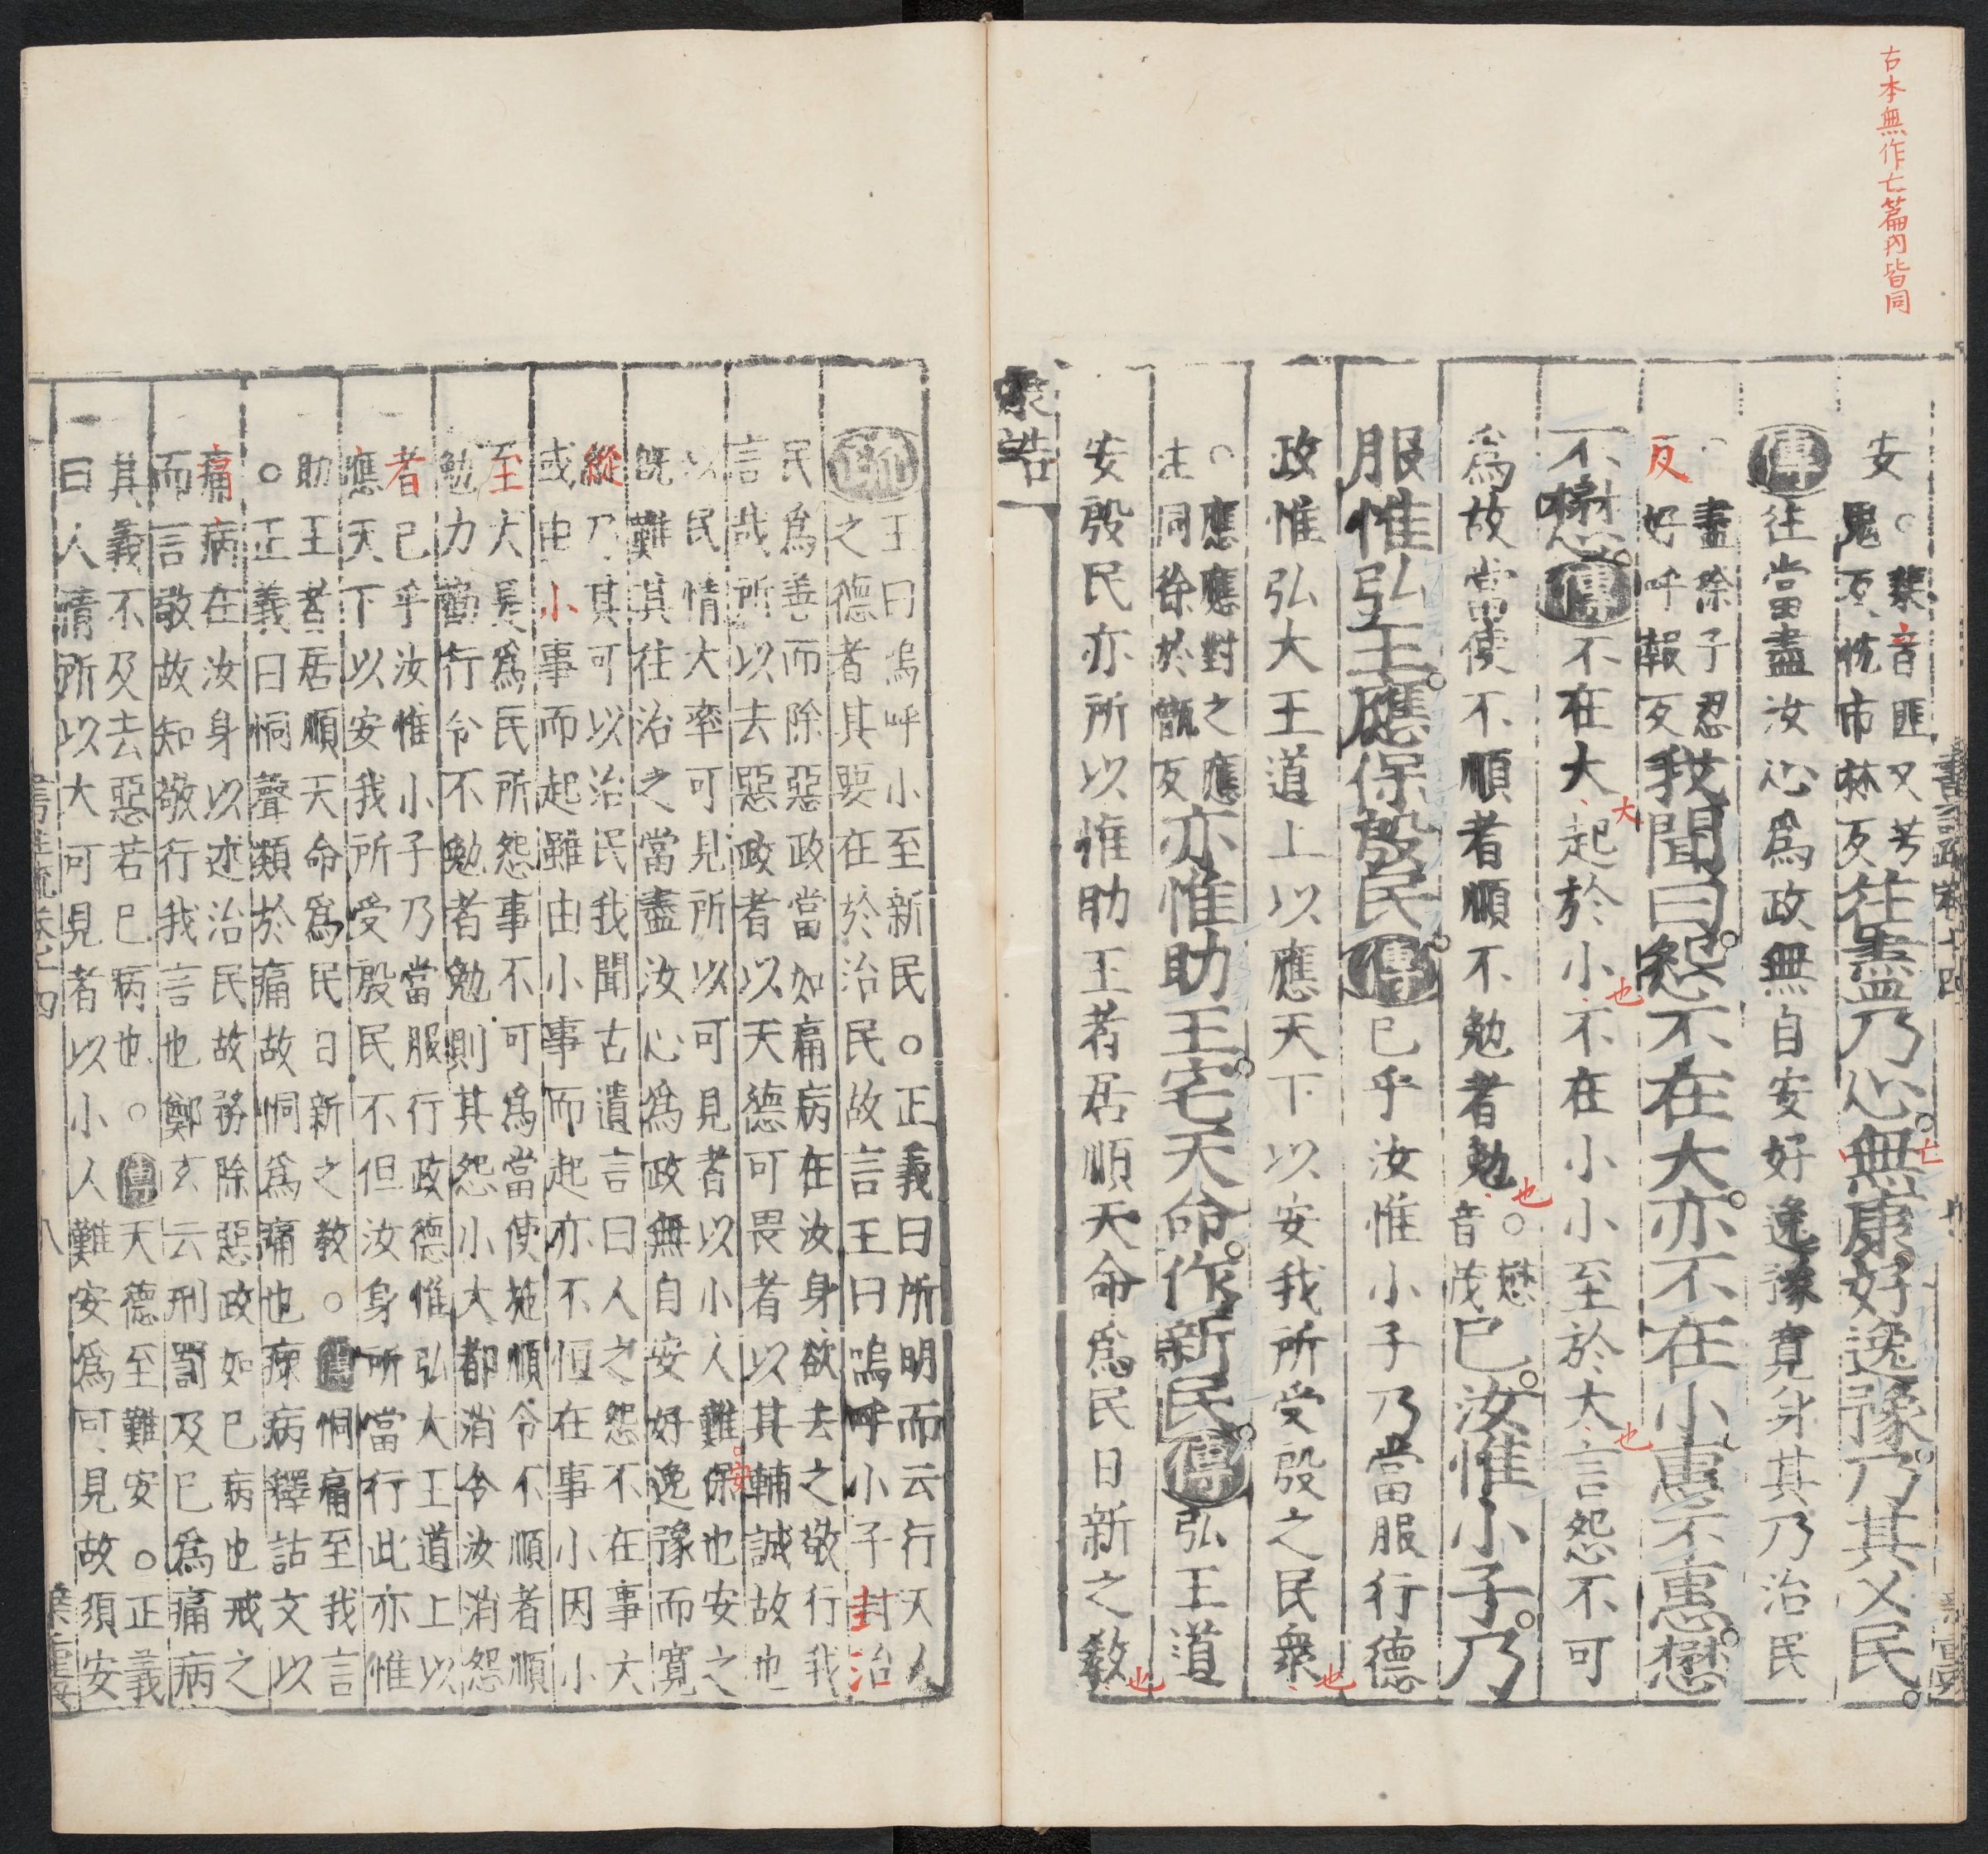 古本無作亡篇內皆同
安○棐音匪又芳
鬼反忱市林反往盡乃心無康好逸豫乃其乂民
亡
傳往當盡汝心為政無自安好逸豫寬身其乃治民
○盡徐子忍
反好呼報反我聞曰怨不在大亦不在小惠不惠懋
不懋傳不在大大起於小也不在小小至於大也言怨不可
為故當使不順者順不勉者勉也○懋
音茂已汝惟小子乃
服惟弘王應保殷民傳已乎汝惟小子乃當服行德
政惟弘大王道上以應天下以安我所受殷之民衆也
○應應對之應
注同徐於甑反亦惟助王宅天命作新民傳弘王道
安殷民亦所以惟助王者居順天命為民日新之敎也
康誥
疏王曰嗚呼小至新民○正義曰所明而云行天人
之德者其要在於治民故言王曰嗚呼小子封治
民為善而除惡政當如痛病在汝身欲去之敬行我
言哉所以去惡政者以天德可畏者以其輔誠故也
以民情大率可見所以可見者以小人難保也安之
安
旣難其往治之當盡汝心為政無自安好逸豫而寬
縱乃其可以治民我聞古遺言曰人之怨不在事大
或由小事而起雖由小事而起亦不恒在事小因小
至大是為民所怨事不可為當使施順令不順者順
勉力勸行令不勉者勉則其怨小大都消令汝消怨
者已乎汝惟小子乃當服行政德惟弘大王道上以
應天下以安我所受殷民不但汝身所當行此亦惟
助王者居順天命為民日新之敎○傳恫痛至我言
○正義曰恫聲類於痛故恫為痛也瘝病釋詁文以
痛病在汝身以述治民故務除惡政如已病也戒之
而言敬故知敬行我言也鄭玄云刑罰及已為痛病
其義不及去惡若已病也○傳天德至難安○正義
曰人情所以大可見者以小人難安為可見故須安